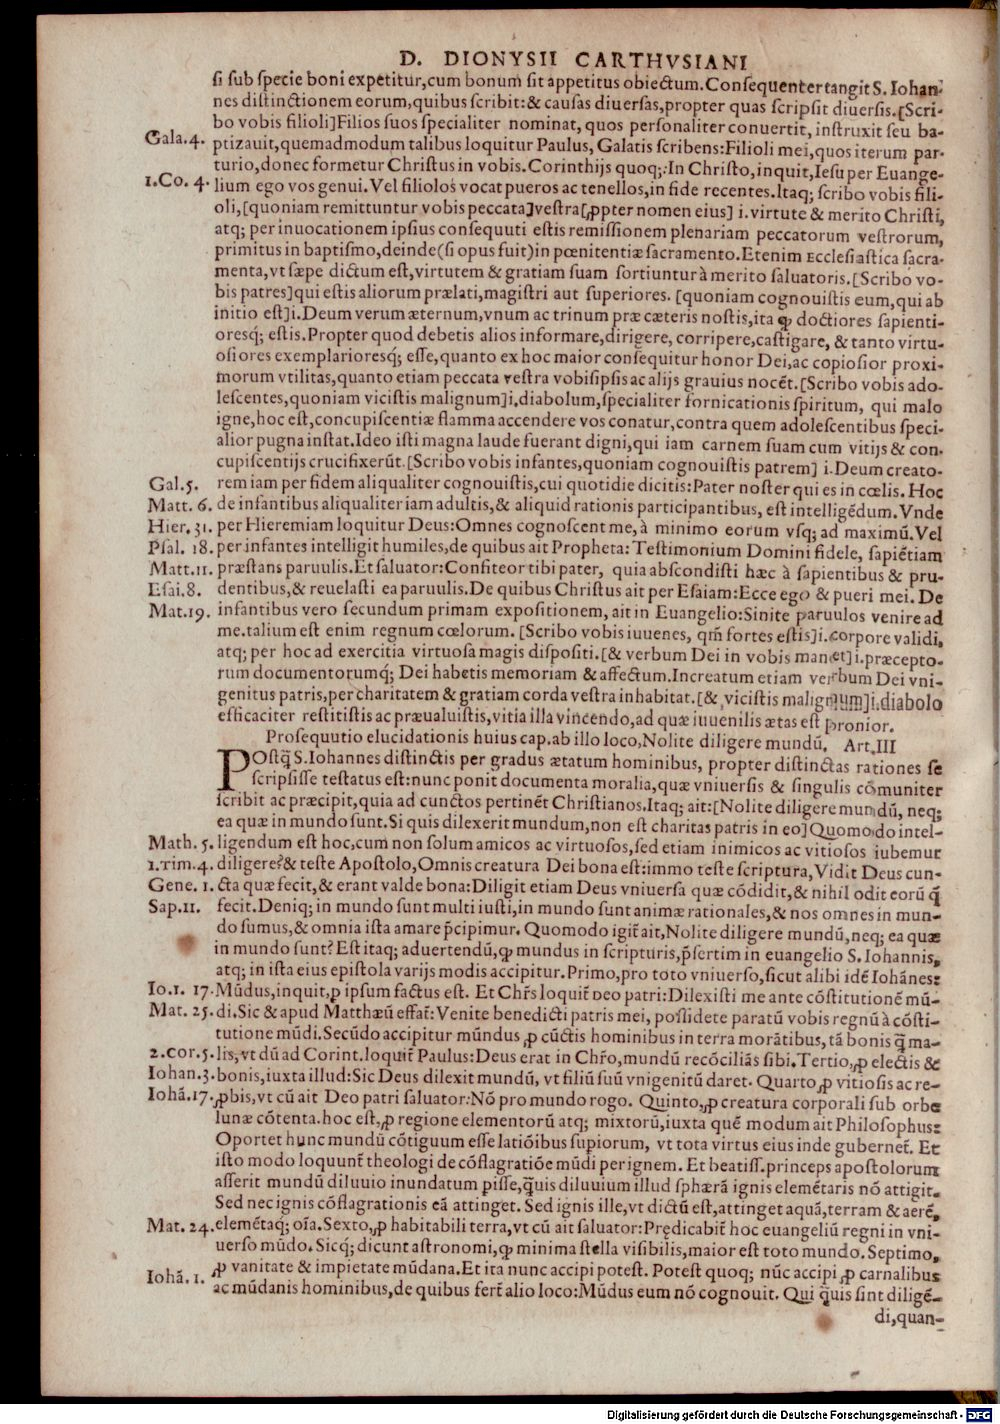 D. DIONYSII CARTHVSIANI
si sub specie boni expetitur,cum bonum sit appetitus obiectum.Consequenter tangit S. Iohan-
nes distinctionem eorum,quibus scribit:& causas diuersas,propter quas scripsit diuersis.[Scri-
bo vobis filioli]Filios suos specialiter nominat, quos personaliter conuertit, instruxit seu ba-
Gala.4. ptizauit,quemadmodum talibus loquitur Paulus, Galatis scribens:Filioli mei,quos iterum par-
turio,donec formetur Christus in vobis.Corinthijs quoq;:In Christo,inquit,Iesu per Euange-
1.Co. 4. lium ego vos genui.Vel filiolos vocat pueros ac tenellos,in fide recentes.Itaq; scribo vobis fili-
oli,[quoniam remittuntur vobis peccata]vestra[ꝓpter nomen eius] i.virtute & merito Christi,
atq; per inuocationem ipsius consequuti estis remissionem plenariam peccatorum vestrorum,
primitus in baptismo,deinde(si opus fuit)in pœnitentiæ sacramento.Etenim Ecclesiastica sacra-
menta,vt sæpe dictum est,virtutem & gratiam suam sortiuntur à merito saluatoris.[Scribo vo-
bis patres]qui estis aliorum prælati,magistri aut superiores. [quoniam cognouistis eum,qui ab
initio est]i.Deum verum æternum,vnum ac trinum præ cæteris nostis,ita ꝙ doctiores sapienti-
oresq; estis.Propter quod debetis alios informare,dirigere, corripere,castigare, & tanto virtu-
osiores exemplarioresq; esse,quanto ex hoc maior consequitur honor Dei,ac copiosior proxi-
morum vtilitas,quanto etiam peccata vestra vobisipsis ac alijs grauius nocẽt.[Scribo vobis ado-
lescentes,quoniam vicistis malignum]i.diabolum,specialiter fornicationis spiritum, qui malo
igne,hoc est,concupiscentiæ flamma accendere vos conatur,contra quem adolescentibus speci-
alior pugna instat.Ideo isti magna laude fuerant digni,qui iam carnem suam cum vitijs & con-
cupiscentijs crucifixerũt.[Scribo vobis infantes,quoniam cognouistis patrem] i.Deum creato-
Gal.5. rem iam per fidem aliqualiter cognouistis,cui quotidie dicitis:Pater noster qui es in cœlis. Hoc
Matt. 6. de infantibus aliqualiter iam adultis,& aliquid rationis participantibus, est intelligẽdum. Vnde
Hier. 31. per Hieremiam loquitur Deus:Omnes cognoscent me, à minimo eorum vsq; ad maximũ. Vel
Psal. 18. per infantes intelligit humiles,de quibus ait Propheta: Testimonium Domini fidele, sapiẽtiam
Matt.11. præstans paruulis.Et saluator:Confiteor tibi pater, quia abscondisti hæc à sapientibus & pru-
Esai.8. dentibus,& reuelasti ea paruulis.De quibus Christus ait per Esaiam:Ecce ego & pueri mei. De
Mat.19. infantibus vero secundum primam expositionem, ait in Euangelio:Sinite paruulos venire ad
me.talium est enim regnum cœlorum. [Scribo vobis iuuenes, qm̃ fortes estis]i.corpore validi,
atq; per hoc ad exercitia virtuosa magis dispositi.[& verbum Dei in vobis manet]i.præcepto-
rum documentorumq; Dei habetis memoriam & affectum.Increatum etiam verbum Dei vni-
genitus patris,per charitatem & gratiam corda vestra inhabitat.[& vicistis malignum]i.diabolo
efficaciter restitistis ac præualuistis,vitia illa vincendo,ad quæ iuuenilis ætas est pronior.
Prosequutio elucidationis huius cap.ab illo loco,Nolite diligere mundũ. Art.III
POstq̃ S.Iohannes distinctis per gradus ætatum hominibus, propter distinctas rationes se
scripsisse testatus est:nunc ponit documenta moralia,quæ vniuersis & singulis cõmuniter
scribit ac præcipit,quia ad cunctos pertinẽt Christianos.Itaq; ait:[Nolite diligere mundũ, neq;
ea quæ in mundo sunt.Si quis dilexerit mundum,non est charitas patris in eo]Quomodo intel-
Math. 5. ligendum est hoc,cum non solum amicos ac virtuosos,sed etiam inimicos ac vitiosos iubemur
1.Tim.4. diligere?& teste Apostolo,Omnis creatura Dei bona est:immo teste scriptura,Vidit Deus cun-
Gene. 1. cta quæ fecit,& erant valde bona:Diligit etiam Deus vniuersa quæ cõdidit,& nihil odit eorũ q̃
Sap.11. fecit.Deniq; in mundo sunt multi iusti,in mundo sunt animæ rationales,& nos omnes in mun-
do sumus,& omnia ista amare p̃cipimur. Quomodo igit̃ ait,Nolite diligere mundũ,neq; ea quæ
in mundo sunt?Est itaq; aduertendũ,ꝙ mundus in scripturis,p̃sertim in euangelio S.Iohannis,
atq; in ista eius epistola varijs modis accipitur.Primo,pro toto vniuerso,sicut alibi idẽ Iohãnes:
Io.1. 17. Mũdus,inquit,ꝑ ipsum factus est. Et Chr̃s loquit̃ Deo patri:Dilexisti me ante cõstitutionẽ mũ-
Mat. 25. di.Sic & apud Matthæũ effat̃: Venite benedicti patris mei, possidete paratũ vobis regnũ à cõsti-
tutione mũdi.Secũdo accipitur mũndus ꝓ cũctis hominibus in terra morãtibus,tã bonis q̃ ma-
2.Cor.5. lis,vt dũ ad Corint.loquit̃ Paulus:Deus erat in Chr̃o,mundũ recõciliãs sibi.Tertio,ꝓ electis &
Iohan.3. bonis,iuxta illud:Sic Deus dilexit mundũ, vt filiũ suũ vnigenitũ daret. Quarto ꝓ vitiosis ac re-
Iohã.17. ꝓbis,vt cũ ait Deo patri saluator:Nõ pro mundo rogo. Quinto,ꝓ creatura corporali sub orbe
lunæ cõtenta.hoc est,ꝓ regione elementorũ atq; mixtorũ,iuxta quẽ modum ait Philosophus:
Oportet hunc mundũ cõtiguum esse latiõibus supiorum, vt tota virtus eius inde gubernet̃. Et
isto modo loquunt̃ theologi de cõflagratiõe mũdi per ignem. Et beatiss.princeps apostolorum
asserit mundũ diluuio inundatum ꝑisse,q̃uis diluuium illud sphærã ignis elemẽtaris nõ attigit.
Sed nec ignis cõflagrationis eã attinget. Sed ignis ille,vt dictũ est,attinget aquã,terram & aerẽ,
Mat. 24. elemẽtaq; oĩa.Sexto,ꝓ habitabili terra,vt cũ ait saluator:Prędicabit̃ hoc euangeliũ regni in vni-
uerso mũdo.Sicq; dicunt astronomi,ꝙ minima stella visibilis,maior est toto mundo.Septimo,
ꝓ vanitate & impietate mũdana.Et ita nunc accipi potest. Potest quoq; nũc accipi ꝓ carnalibus
Iohã. 1. ac mũdanis hominibus,de quibus fert̃ alio loco:Mũdus eum nõ cognouit. Qui q̃uis sint diligẽ-
di,quan-
Digitalisierung gefördert durch die Deutsche Forschungsgemeinschaft - DFG